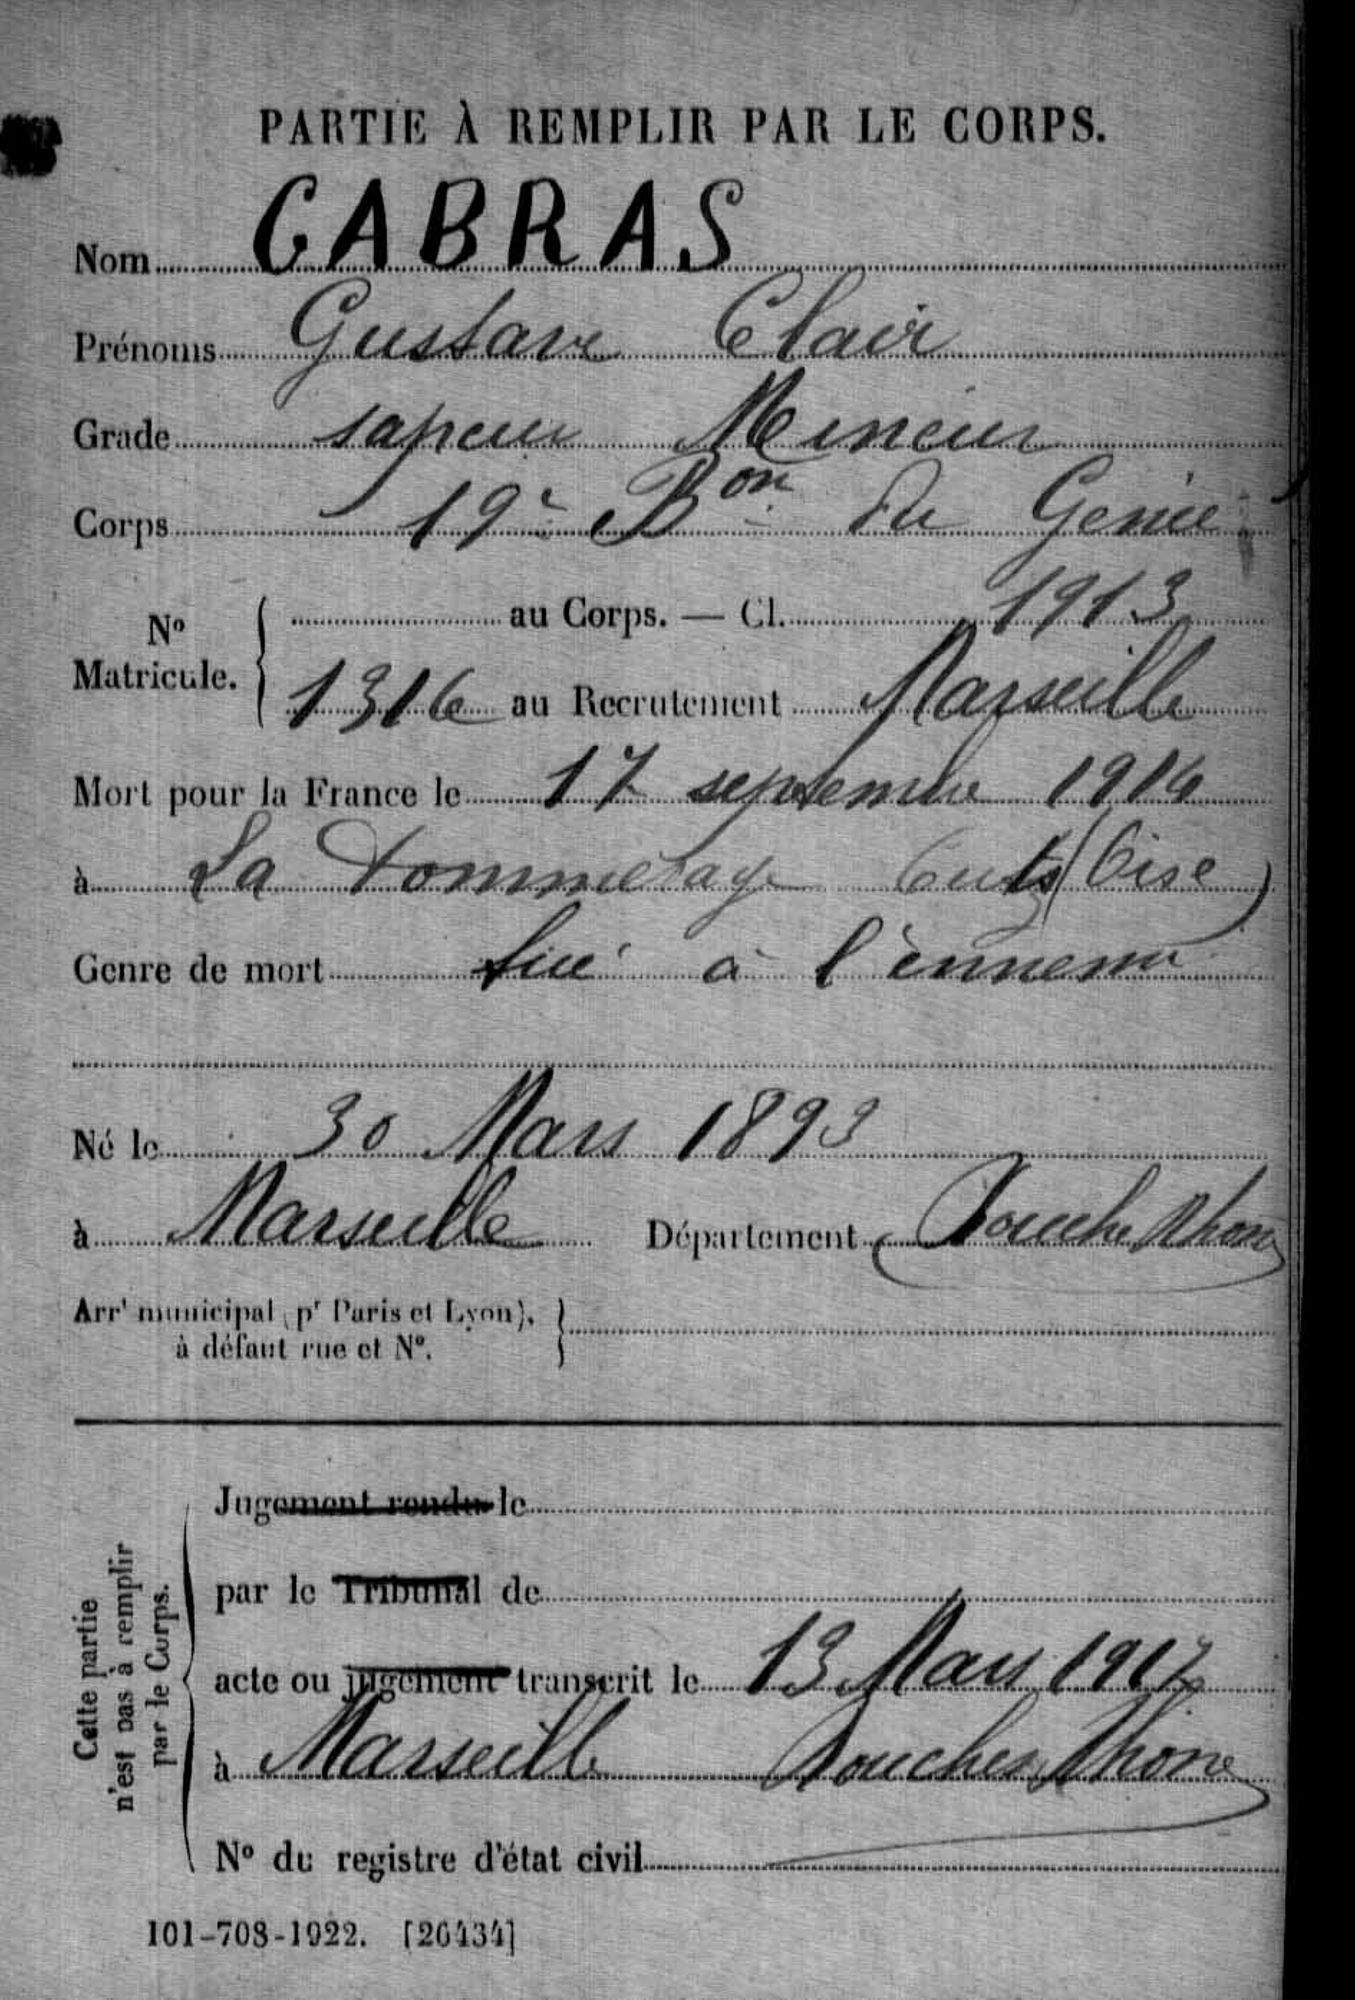 PARTIE À REMPLIR PAR LE CORPS.
Nom CABRAS
Prénoms Gustave Clair
Grade sapeur Mineur
Corps 19e Bon du Génie
No Matricule. au Corps. — Cl. 1913
1316 au Recrutement Marseille
Mort pour la France le 17 septembre 1914
à La Cuts (Oise)
Genre de mort tué à l'ennemi
Né le 30 Mars 1893
à Marseille Département Bouche Rhone
Arrt municipal (pr Paris et Lyon),
à défaut rue et No.
Cette partie
n'est pas à remplir
par le Corps.
Jugement rendu le
par le Tribunal de
acte ou jugement transcrit le 13 Mars 1917
à Marseille Bouches Rhône
No du registre d'état civil
101-708-1922. [26434]